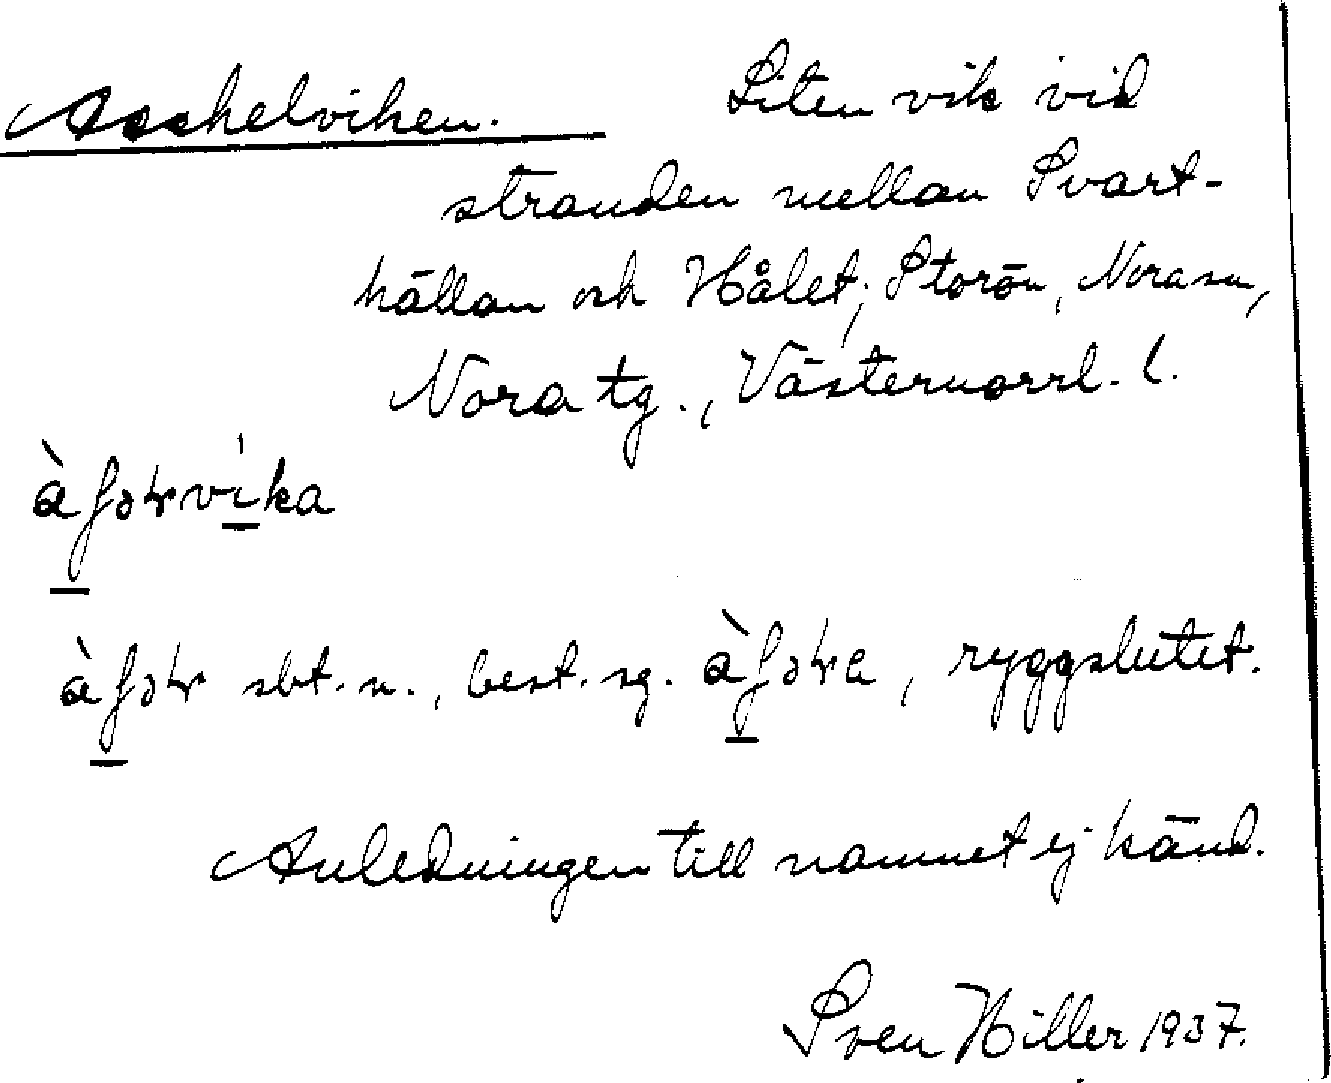 Asskelviken. Liten vik vid
stranden mellan Svart-
hällan och Hålet; Storön, Nora sn,
Nora tg., Västernorrl. l.
sbt. n., best. sg. , ryggslutet.
Anledningen till namnet ej känd.
Sven Hiller 1937.